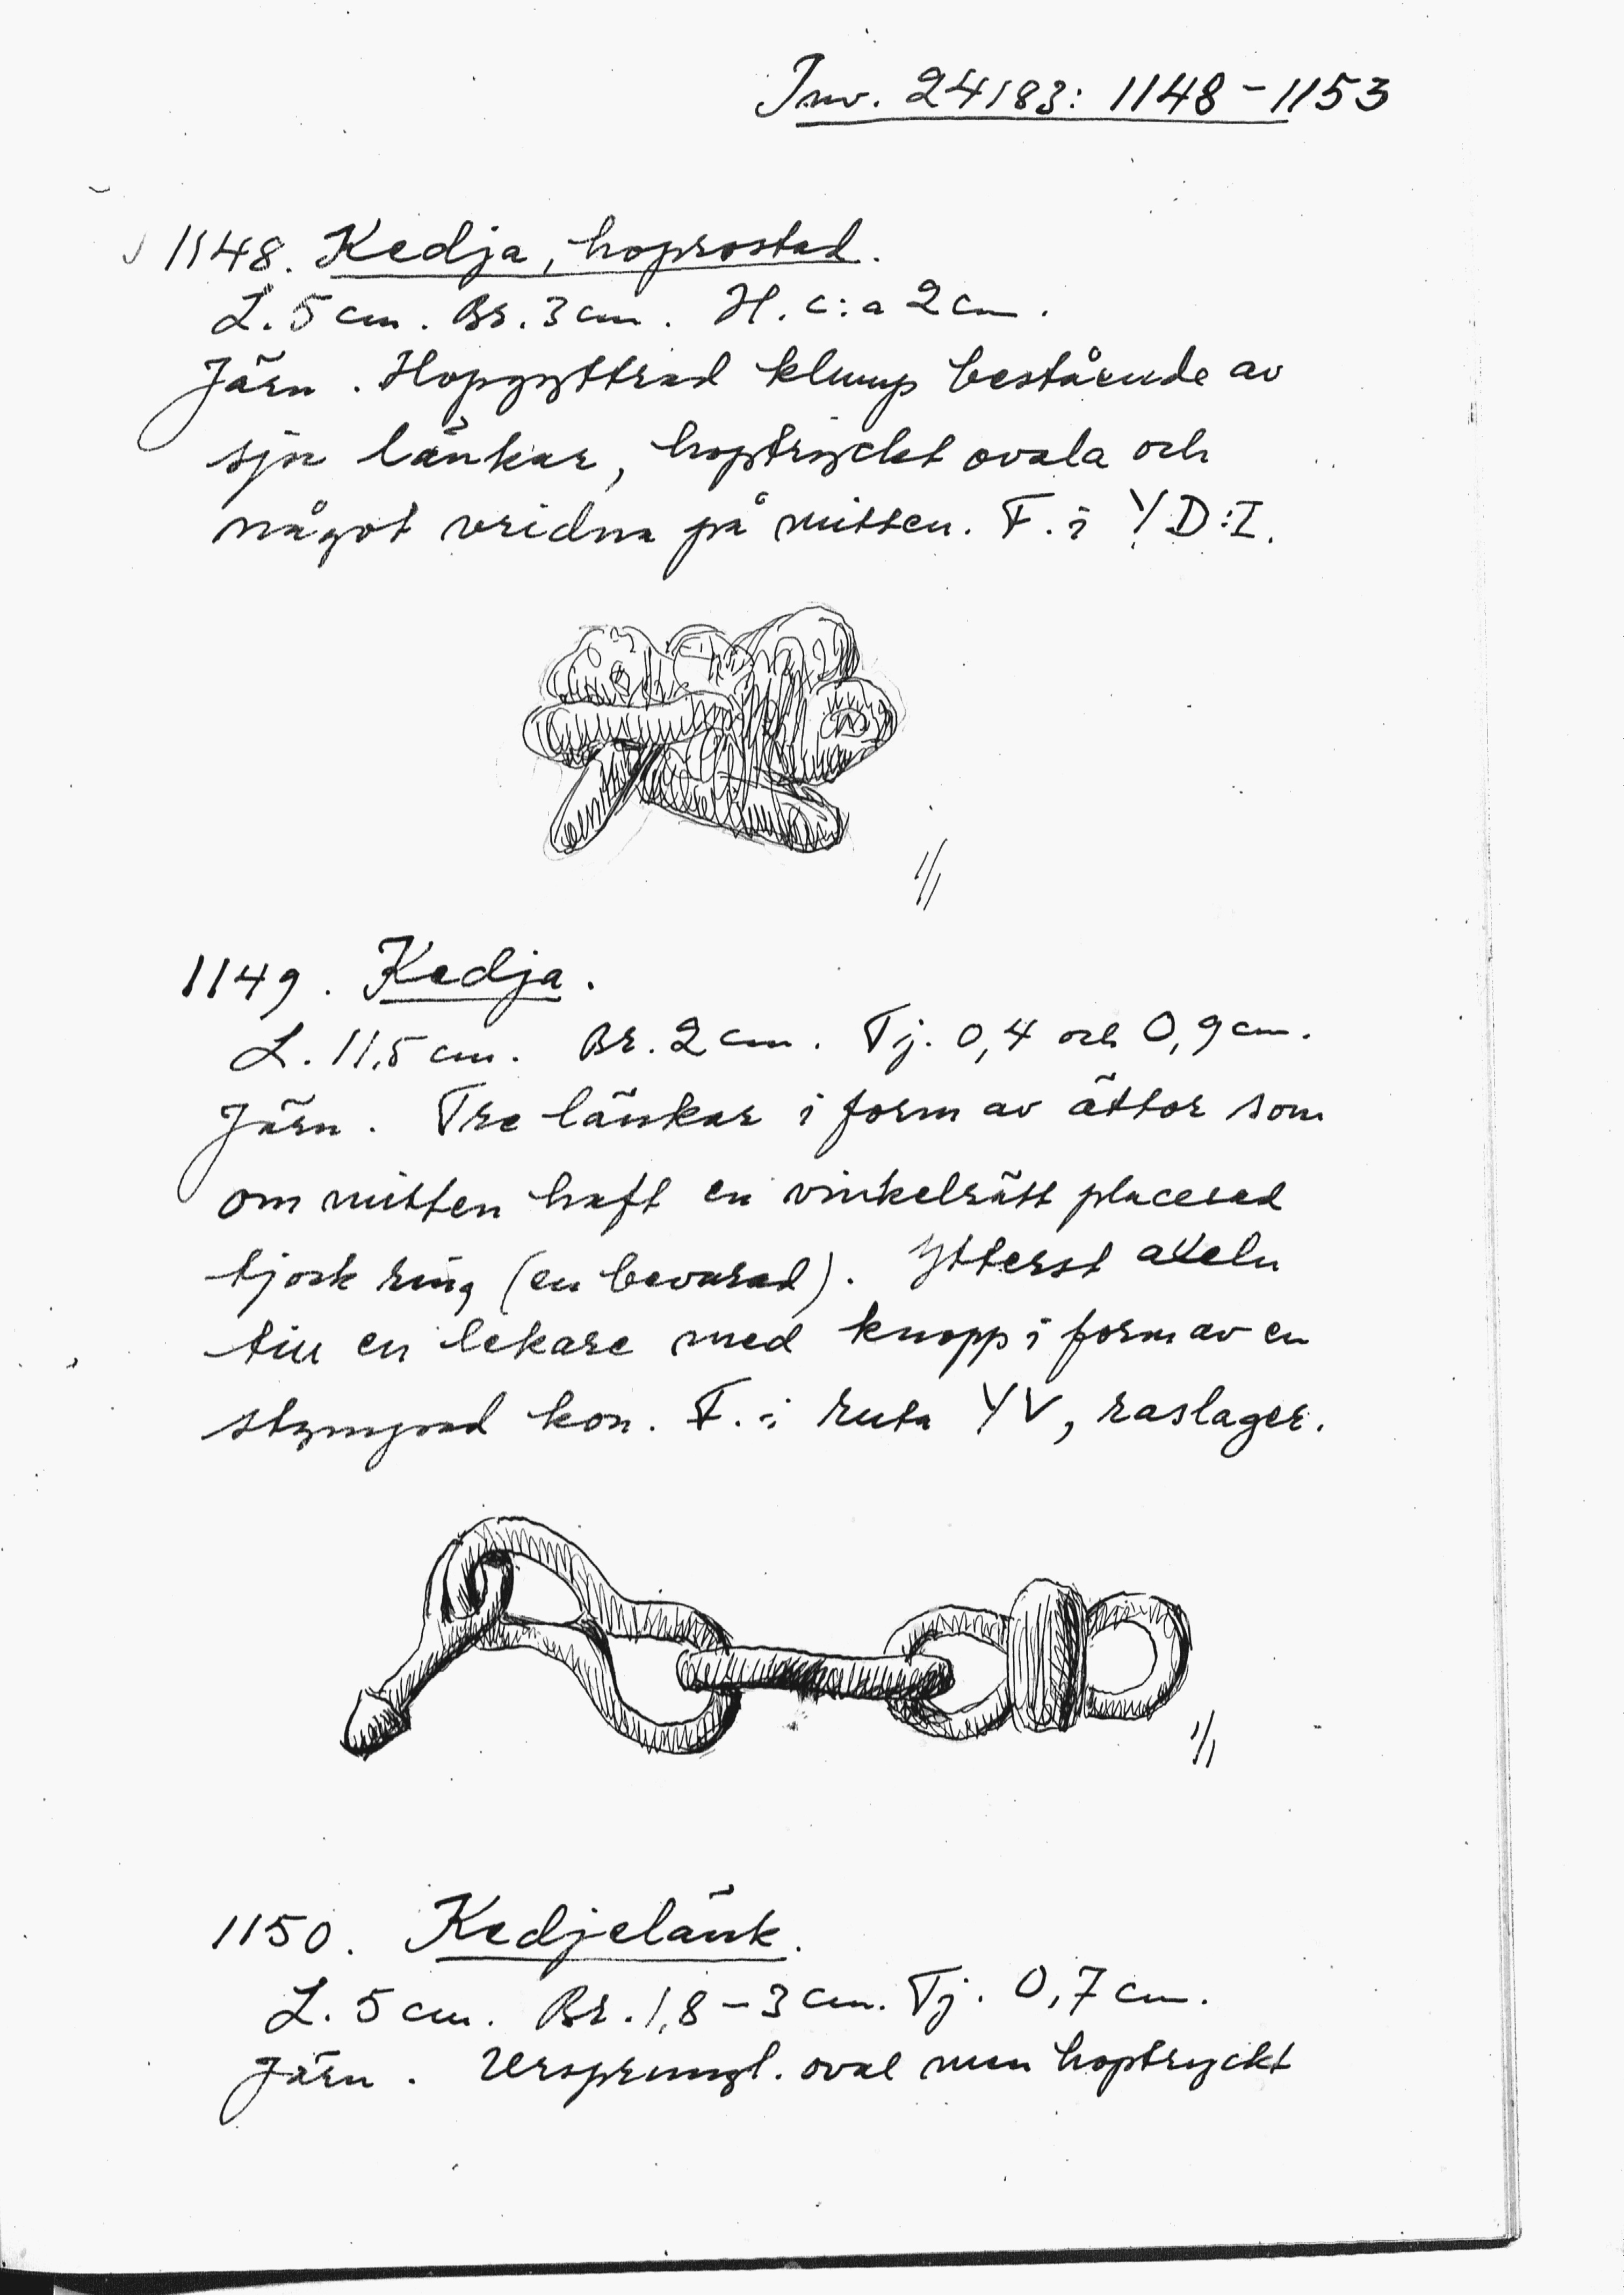 Inv. 24183: 1148-1153
1148. Kedja, hoprostad.
L. 5 cm. Br. 3 cm. H. c:a 2 cm.
Järn. Hopgyttrad klump bestående av
sju länkar, hoptryckt ovala och
något vridna på mitten. F. i YD:I.
1/1
1149. Kedja.
L. 11,5 cm. Br. 2 cm. Tj. 0,4 och 0,9 cm.
Järn. Tre länkar i form av åttor som
om mitten haft en vinkelrätt placerad
tjock ring (en bevarad). Ytterst axeln
till en lekare med knopp i form av en
stympad kon. F. i ruta YV, raslager.
1/1
1150. Kedjelänk.
L. 5 cm. Br. 1,8-3 cm. Tj. 0,7 cm.
Järn. Ursprungl. oval men hoptryckt